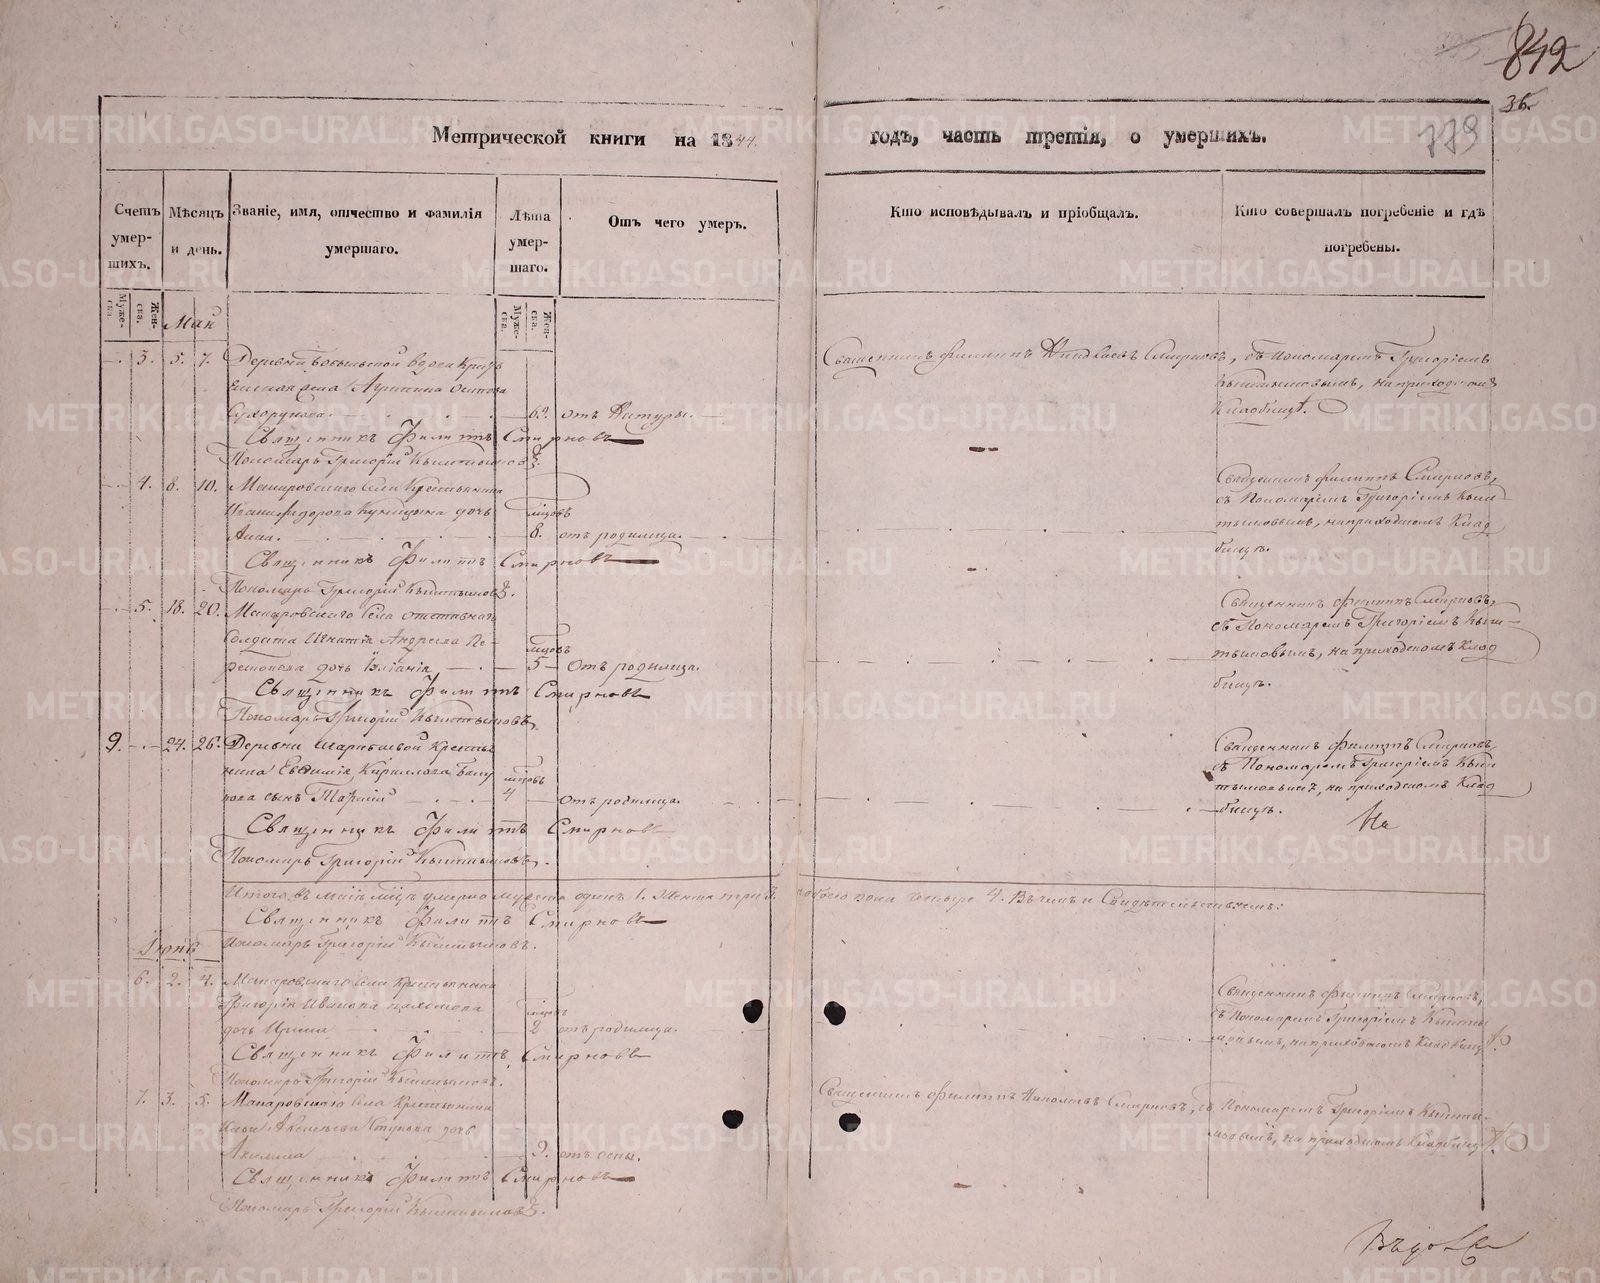 842
36.
779
Метрической книги на 1844. годъ, часть третія, о умершихъ.
Счетъ умер-шихъ.
Мѣсяцъ и день.
Званіе, имя, отчество и фамилія умершаго.
Лѣта умер-шаго.
Отъ чего умеръ.
Кто исповѣдывалъ и пріобщалъ.
Кто совершалъ погребеніе и гдѣ погребены.
Муже-ска.
Жен-ска.
Муже-ска.
Жен-ска.
Маи
3. 5. 7. Деревни вдова Агрипина Осипова
Сухорукова. 62. отъ Натуры.
Священникъ Филиппъ Смирновъ, съ Пономаремъ Григоріемъ
Кыштымовымъ, на приходскомъ
Кладбищѣ.
Священникъ Филиппъ Смирновъ
Пономарь Григорій Кыштымовъ.
4. 8. 10. Макаровскаго Села Крестьянина
Ивана Федорова Куницына дочь мѣсяцовъ
Анна. 8. отъ родимца.
Священникъ Филиппъ Смирновъ,
съ Пономаремъ Григоріемъ Кыш-
тымовымъ, на приходскомъ Клад
бищѣ.
Священникъ Филиппъ Смирновъ
Пономарь Григорій Кыштымовъ.
5. 18. 20. Макаровскаго Села отставнаго
Солдата Игнатія Андреева
дочь 5 Отъ родимца.
Священникъ Филиппъ Смирновъ,
съ Пономаремъ Григоріемъ Кыш-
тымовымъ, на приходскомъ Клад
бищѣ.
Священникъ Филиппъ Смирновъ
Пономарь Григорій Кыштымовъ.
9. 24. 26. Деревни Крестья
нина Евфимія Кирилова
сынъ 4 отъ родимца.
Священникъ Филиппъ Смирновъ
съ Пономаремъ Григоріемъ Кыш
тымовымъ, на приходскомъ Клад
бищѣ.
На
Священникъ Филиппъ Смирновъ
Пономарь Григорій Кыштымовъ.
Итого въ маіѣ умерло мужеска одинъ 1. Женска три 3. обоего пола четыре 4. Въ чемъ и Свидѣтельствуемъ:
Священникъ Филиппъ Смирновъ
Пономарь Григорій Кыштымовъ.
Іюнь
6. 2. 4. Макаровскаго Села Крестьянина
Григорія Иванова Пахомова
дочь Ирина 2 отъ родимца.
Священникъ Филиппъ Смирновъ,
съ Пономаремъ Григоріемъ Кышты
мовымъ, на приходскомъ Кладбищѣ.
Священникъ Филиппъ Смирновъ
Пономарь Григорій Кыштымовъ.
7. 3. 5. Макаровскаго Села Крестьянина
дочь
Акилина 9. отъ оспы.
Священникъ Филиппъ Смирновъ, съ Пономаремъ Григоріемъ Кышты-
мовымъ, на приходскомъ Кладбищѣ.
Священникъ Филиппъ Смирновъ
Пономарь Григорій Кыштымовъ.
METRIKI.GASO-URAL.RU